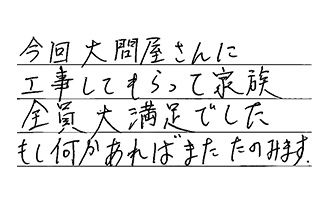 今回大問屋さんに
工事してもらって家族
全員大満足でした
もし何かあればまたたのみます.